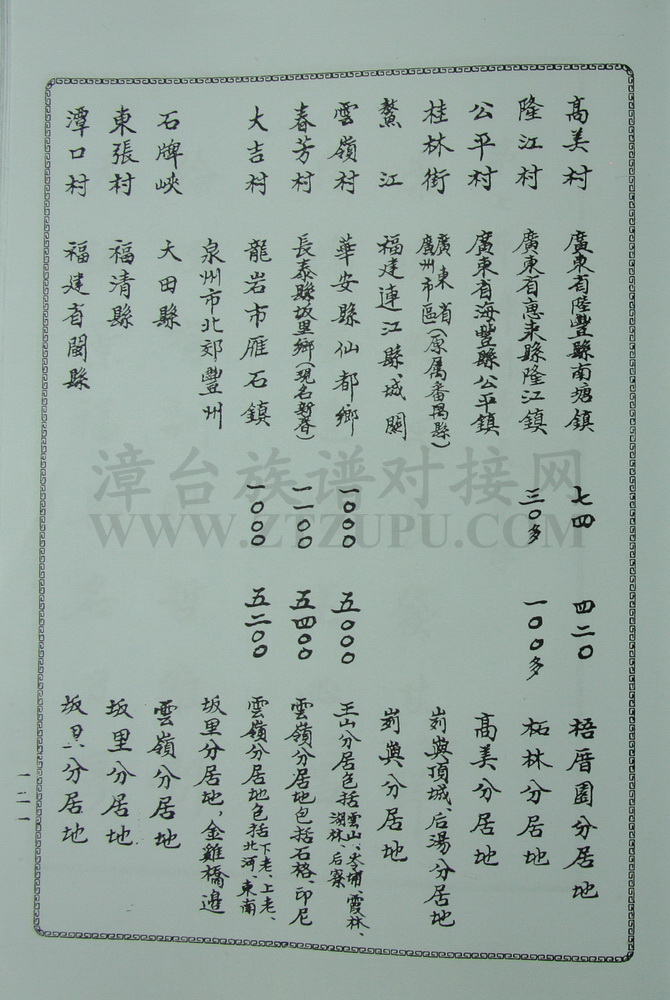 高美村 廣東省陸豐縣南塘鎮 七四 四二〇 梧厝園分居地
隆江村 廣東省惠來縣隆江鎮 三〇多 一〇〇多 柘林分居地
公平村 廣東省海豐縣公平鎮 高美分居地
桂林街 廣東省廣州市區(原属番禺縣) 剡與頂城、后湯分居地
鰲江 福建連江縣、城關 剡與分居地
雲嶺村 華安縣仙都鄉 一〇〇〇 五〇〇〇 王山分居包括雲山、岑埔、霞林、湖林、后寮
春芳村 長泰縣坂里鄉(現名新春) 一一〇〇 五四〇〇 雲嶺分居地包括石格、印尼
大吉村 龍岩市雁石鎮 一〇〇〇 五二〇〇 雲嶺分居地包括下老、上老、北河、東南
泉州市北郊豐州 坂里分居地,金雞橋邊
石牌峽 大田縣 雲嶺分居地
東張村 福清縣 坂里分居地
潭口村 福建省閩縣 坂里分居地
一二一
漳台族谱对接网
WWW.ZTZUPU.COM